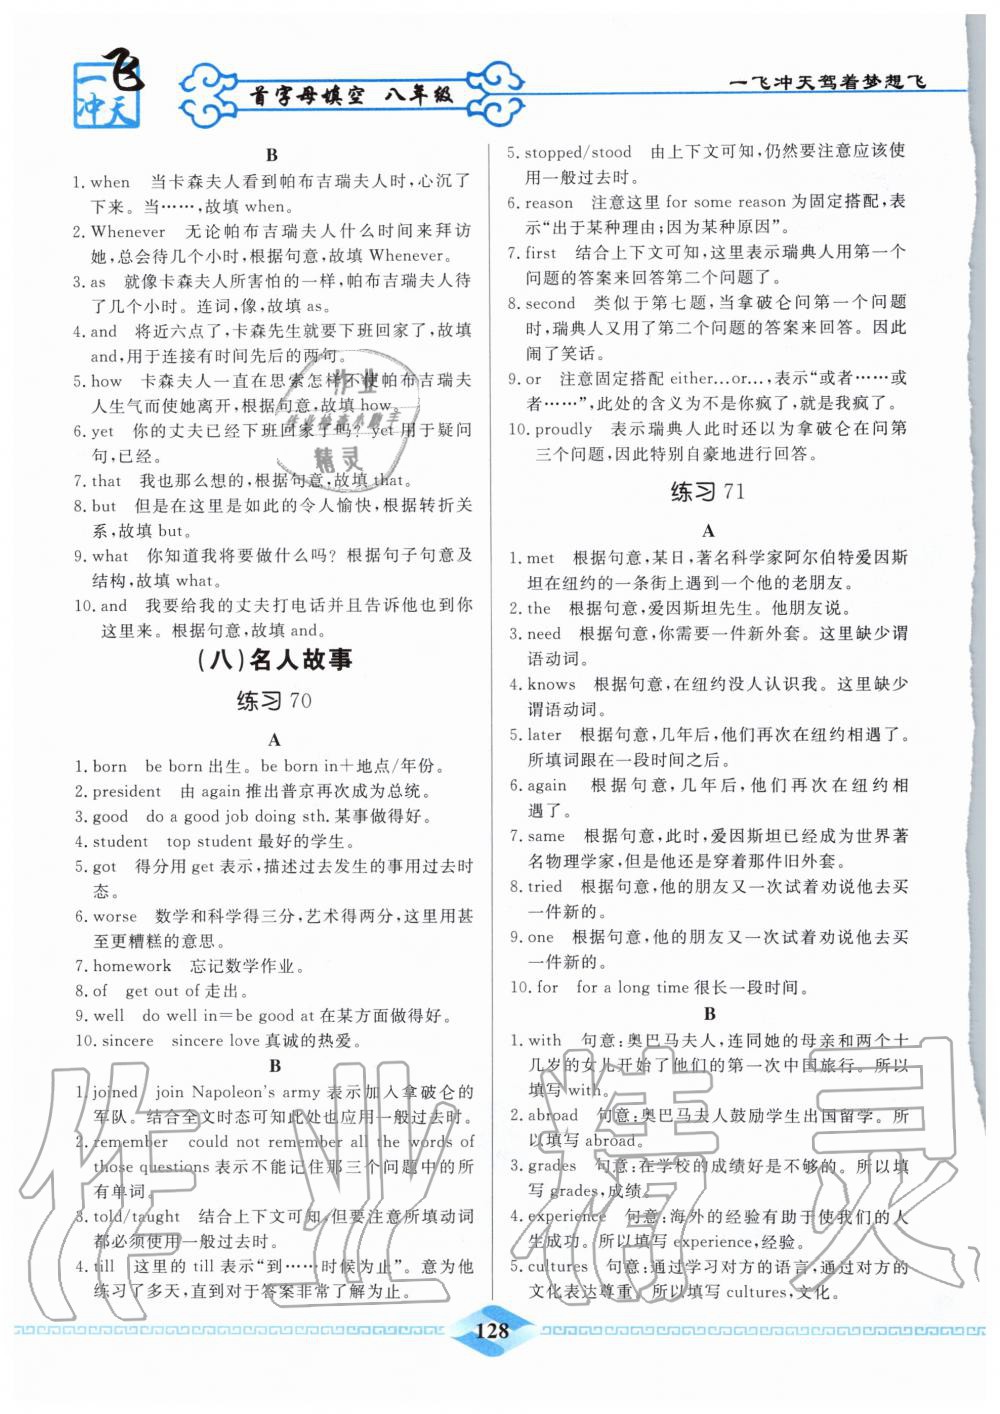 一飞冲天
首字母填空 八年级
一飞冲天驾着梦想飞
B
1. when 当卡森夫人看到帕布吉瑞夫人时,心沉了
下来。当……,故填 when。
2. Whenever 无论帕布吉瑞夫人什么时间来拜访
她,总会待几个小时,根据句意,故填 Whenever。
3. as 就像卡森夫人所害怕的一样,帕布吉瑞夫人待
了几个小时。连词,像,故填 as。
4. and 将近六点了,卡森先生就要下班回家了,故填
and,用于连接有时间先后的两句。
5. how 卡森夫人一直在思索怎样不使帕布吉瑞夫
人生气而使她离开,根据句意,故填 how。
6. yet 你的丈夫已经下班回家了吗? yet 用于疑问
句,已经。
7. that 我也那么想的,根据句意,故填 that。
8. but 但是在这里是如此的令人愉快,根据转折关
系,故填 but。
9. what 你知道我将要做什么吗? 根据句子句意及
结构,故填 what。
10. and 我要给我的丈夫打电话并且告诉他也到你
这里来。根据句意,故填 and。
(八)名人故事
练习 70
A
1. born be born 出生。be born in+地点/年份。
2. president 由 again 推出普京再次成为总统。
3. good do a good job doing sth. 某事做得好。
4. student top student 最好的学生。
5. got 得分用 get 表示,描述过去发生的事用过去时
态。
6. worse 数学和科学得三分,艺术得两分,这里用甚
至更糟糕的意思。
7. homework 忘记数学作业。
8. of get out of 走出。
9. well do well in=be good at 在某方面做得好。
10. sincere sincere love 真诚的热爱。
B
1. joined join Napoleon's army 表示加入拿破仑的
军队。结合全文时态可知此处也应用一般过去时。
2. remember could not remember all the words of
those questions 表示不能记住那三个问题中的所
有单词。
3. told/taught 结合上下文可知,但要注意所填动词
都必须使用一般过去时。
4. till 这里的 till 表示“到……时候为止”。意为他
练习了多天,直到对于答案非常了解为止。
5. stopped/stood 由上下文可知,仍然要注意应该使
用一般过去时。
6. reason 注意这里 for some reason 为固定搭配,表
示“出于某种理由;因为某种原因”。
7. first 结合上下文可知,这里表示瑞典人用第一个
问题的答案来回答第二个问题了。
8. second 类似于第七题,当拿破仑问第一个问题
时,瑞典人又用了第二个问题的答案来回答。因此
闹了笑话。
9. or 注意固定搭配 either...or...,表示“或者……或
者……”,此处的含义为不是你疯了,就是我疯了。
10. proudly 表示瑞典人此时还以为拿破仑在问第
三个问题,因此特别自豪地进行回答。
练习 71
A
1. met 根据句意,某日,著名科学家阿尔伯特爱因斯
坦在纽约的一条街上遇到一个他的老朋友。
2. the 根据句意,爱因斯坦先生。他朋友说。
3. need 根据句意,你需要一件新外套。这里缺少谓
语动词。
4. knows 根据句意,在纽约没人认识我。这里缺少
谓语动词。
5. later 根据句意,几年后,他们又在纽约相遇了。
所填词跟在一段时间之后。
6. again 根据句意,几年后,他们再次在纽约相
遇了。
7. same 根据句意,此时,爱因斯坦已经成为世界著
名物理学家,但是他还是穿着那件旧外套。
8. tried 根据句意,他的朋友又一次试着劝说他去买
一件新的。
9. one 根据句意,他的朋友又一次试着劝说他去买
一件新的。
10. for for a long time 很长一段时间。
B
1. with 句意:奥巴马夫人,连同她的母亲和两个十
几岁的女儿开始了他们的第一次中国旅行。所以
填写 with。
2. abroad 句意:奥巴马夫人鼓励学生出国留学。所
以填写 abroad。
3. grades 句意:在学校的成绩好是不够的。所以填
写 grades,成绩。
4. experience 句意:海外的经验有助于使我们的人
生成功。所以填写 experience,经验。
5. cultures 句意:通过学习对方的语言,通过对方的
文化表达尊重。所以填写 cultures,文化。
128
作业精灵